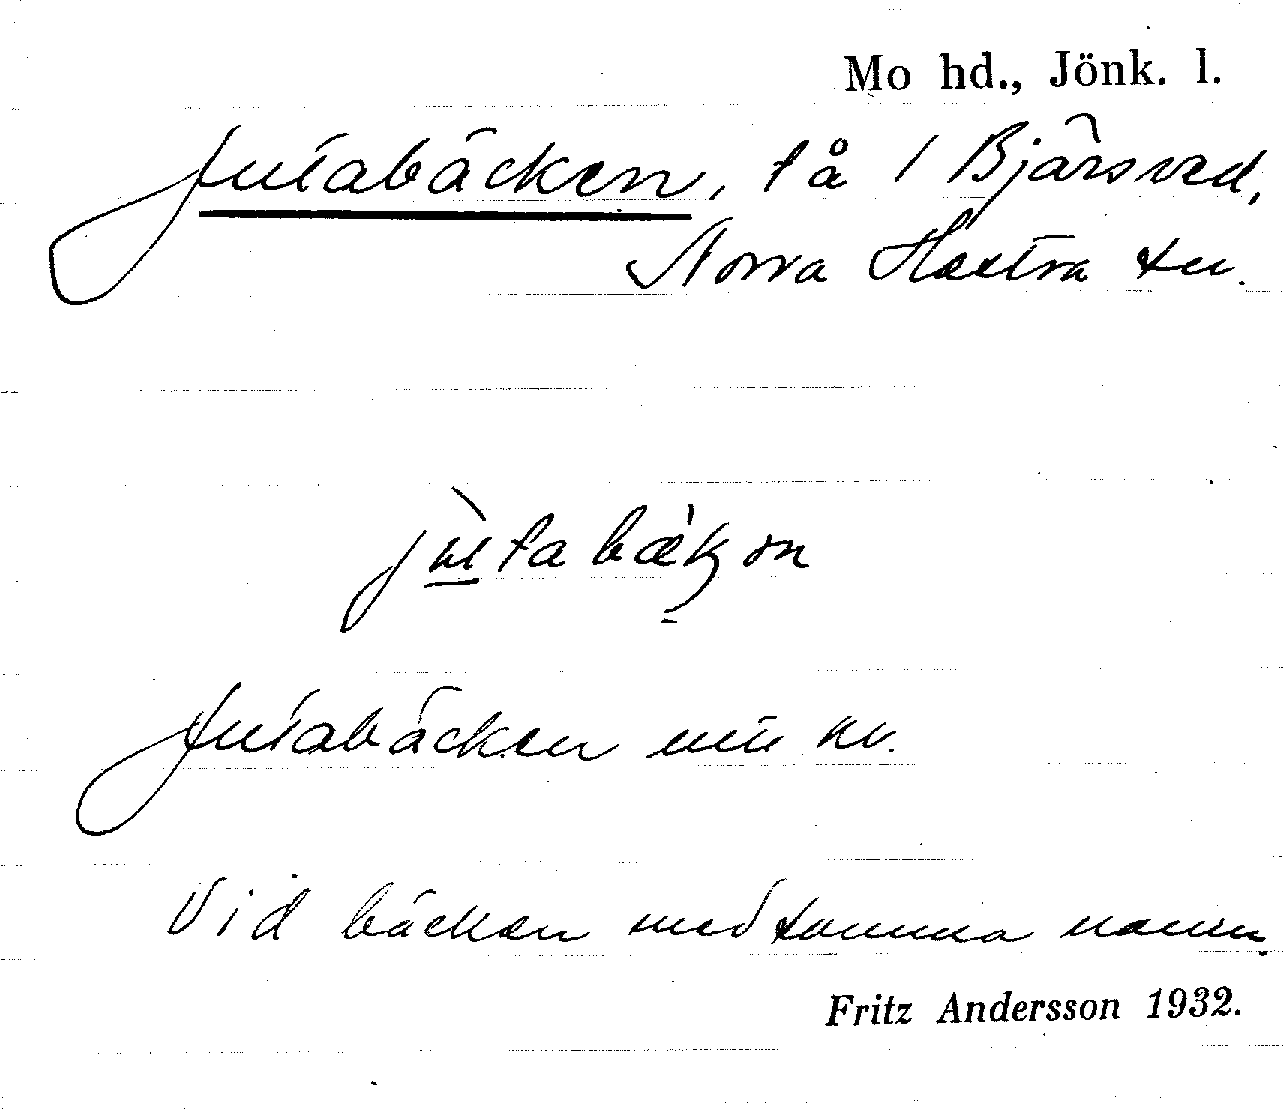 Mo hd., Jönk. l.
Jutabäcken, tå i Bjärsved,
Norra Hestra sn.
Jutabäcken
Vid bäcken med samma namn.
Fritz Andersson 1932.